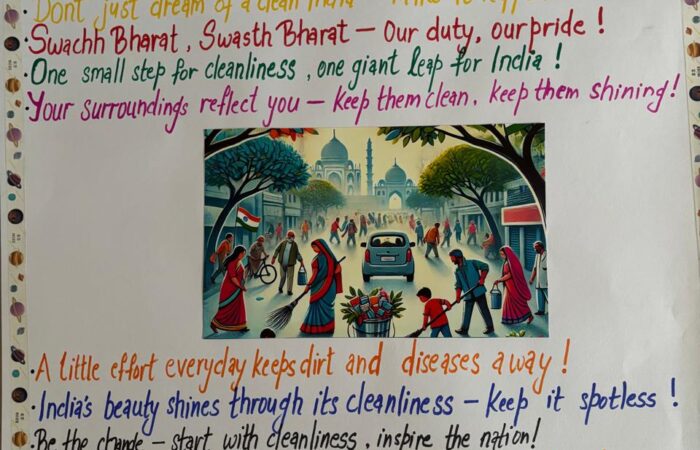 · Dont just dream of a clean India
· Swachh Bharat, Swasth Bharat – Our duty, our pride !
· One small step for cleanliness, one giant leap for India !
· Your surroundings reflect you – Keep them clean, keep them shining!
· A little effort everyday keeps dirt and diseases away !
· India's beauty shines through its cleanliness – Keep it spotless !
· Be the change – start with cleanliness, inspire the nation!